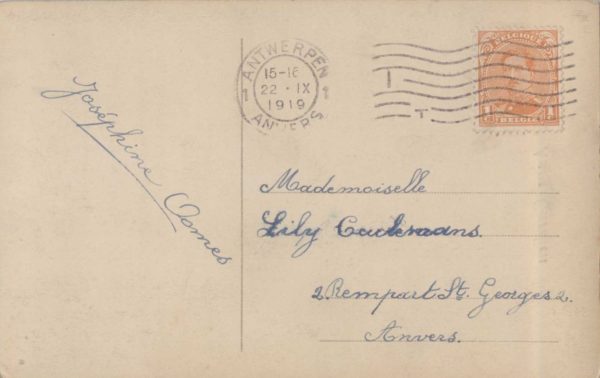 ANTWERPEN
15-16
22 · IX
1919
1 1
ANVERS
T
T
BELGIQUE
1 1
BELGIË
Joséphine Oomes
Mademoiselle
Lily
2. Rempart St. Georges 2.
Anvers.